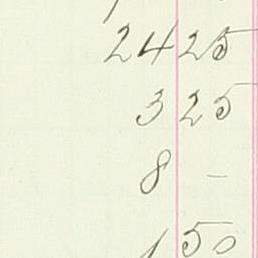 24 25
3 25
8 –
1 50